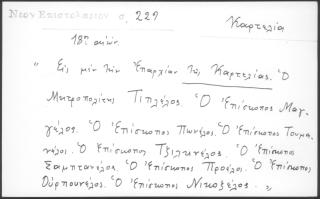 Νεον Επιστολαριον σ. 229
Καρτελία
18ος αιών.
"Εις μεν την Επαρχίαν της Καρτελίας. Ὁ
Μητροπολίτης Τιπλέλος. Ὁ Επίσκοπος Μαγ-
γέλος. Ὁ Επίσκοπος Πωνέλος. Ὁ Επίσκοπος Τουμα-
νέλος. Ὁ Επίσκοπος Τζιλκανέλος. Ὁ Επίσκοπος
Σαμπανέλος. Ὁ Επίσκοπος Προέλοι. Ὁ Επίσκοπος
Ούρπουνέλος. Ὁ Επίσκοπος Νικοζέλος. "